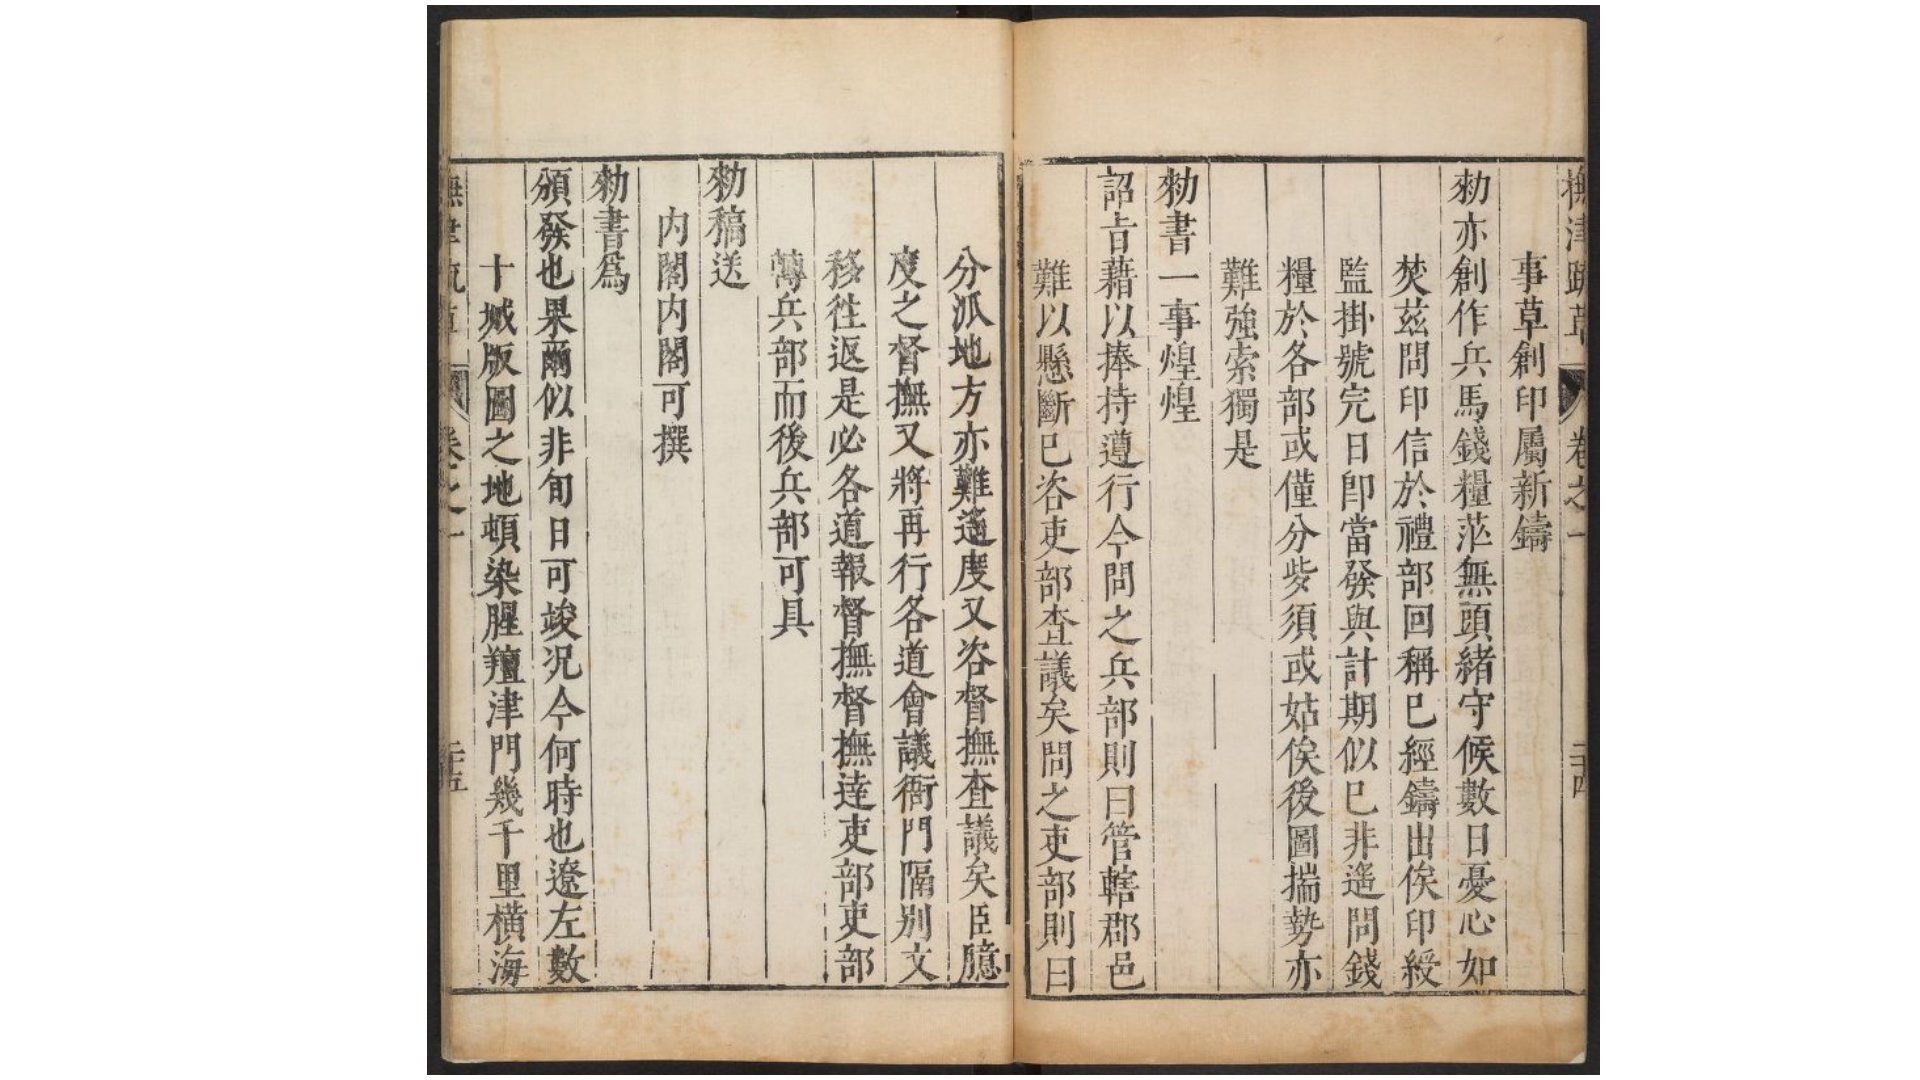 撫津疏草 卷之一 二十四
事草創印屬新鑄
勑亦創作兵馬錢糧茫無頭緒守候數日憂心如
焚茲問印信於禮部回稱已經鑄出俟印綬
監掛號完日卽當發與計期似已非遙問錢
糧於各部或僅分毫須或姑俟後圖揣勢亦
難強索獨是
勑書一事煌煌
詔旨藉以捧持遵行今問之兵部則曰管轄郡邑
難以懸斷已咨吏部查議矣問之吏部則曰
分派地方亦難遙度又咨督撫查議矣臣臆
度之督撫又將再行各道會議衙門隔別文
移往返是必各道報督撫督撫達吏部吏部
轉兵部而後兵部可具
勑稿送
內閣內閣可撰
勑書爲
頒發也果爾似非旬日可竣況今何時也遼左數
十城版圖之地頓染腥羶津門幾千里橫海
撫津疏草 卷之一 二十五